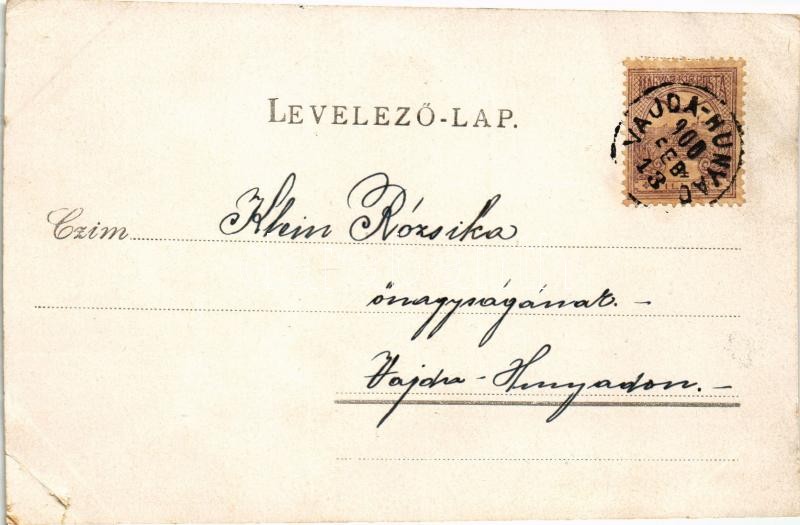 LEVELEZŐ-LAP.
VAJDA-HUNYAD
900
FEB
13
Czim Klein Rózsika
őnagyságának. -
Vajda-Hunyadon. -